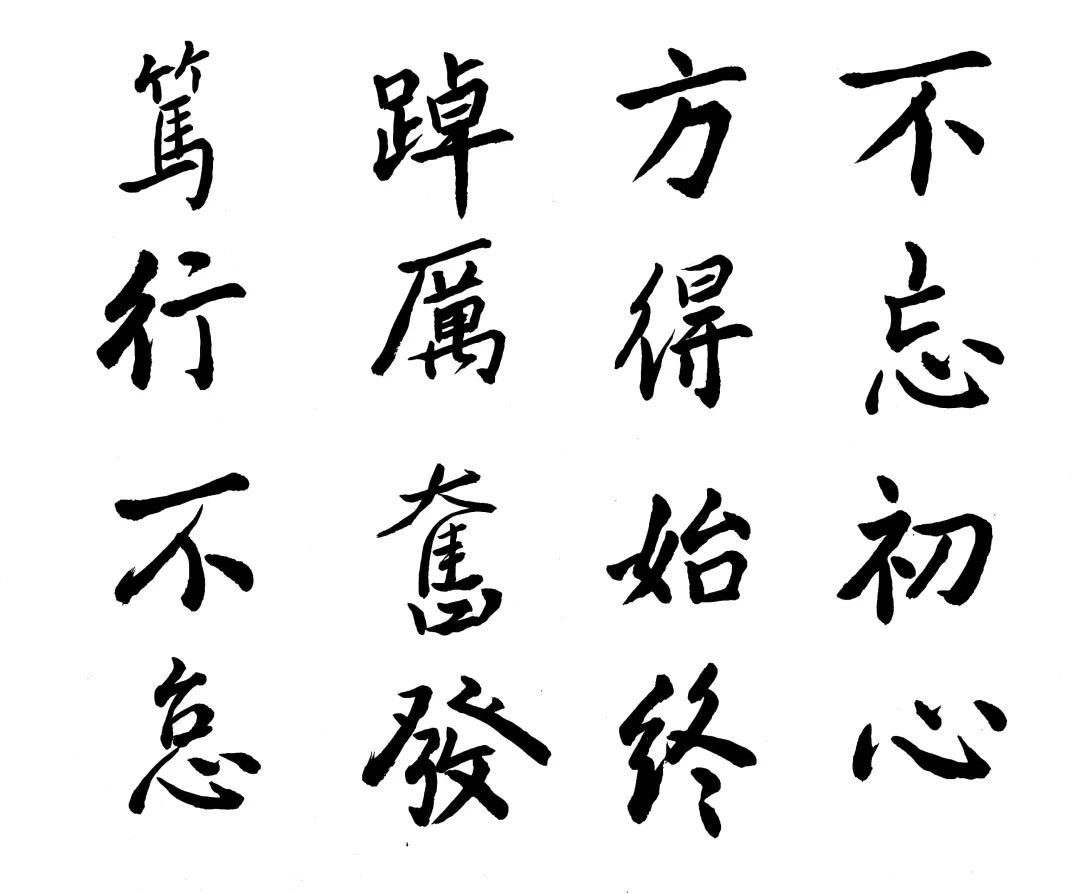 不忘初心
方得始終
踔厲奮發
篤行不怠